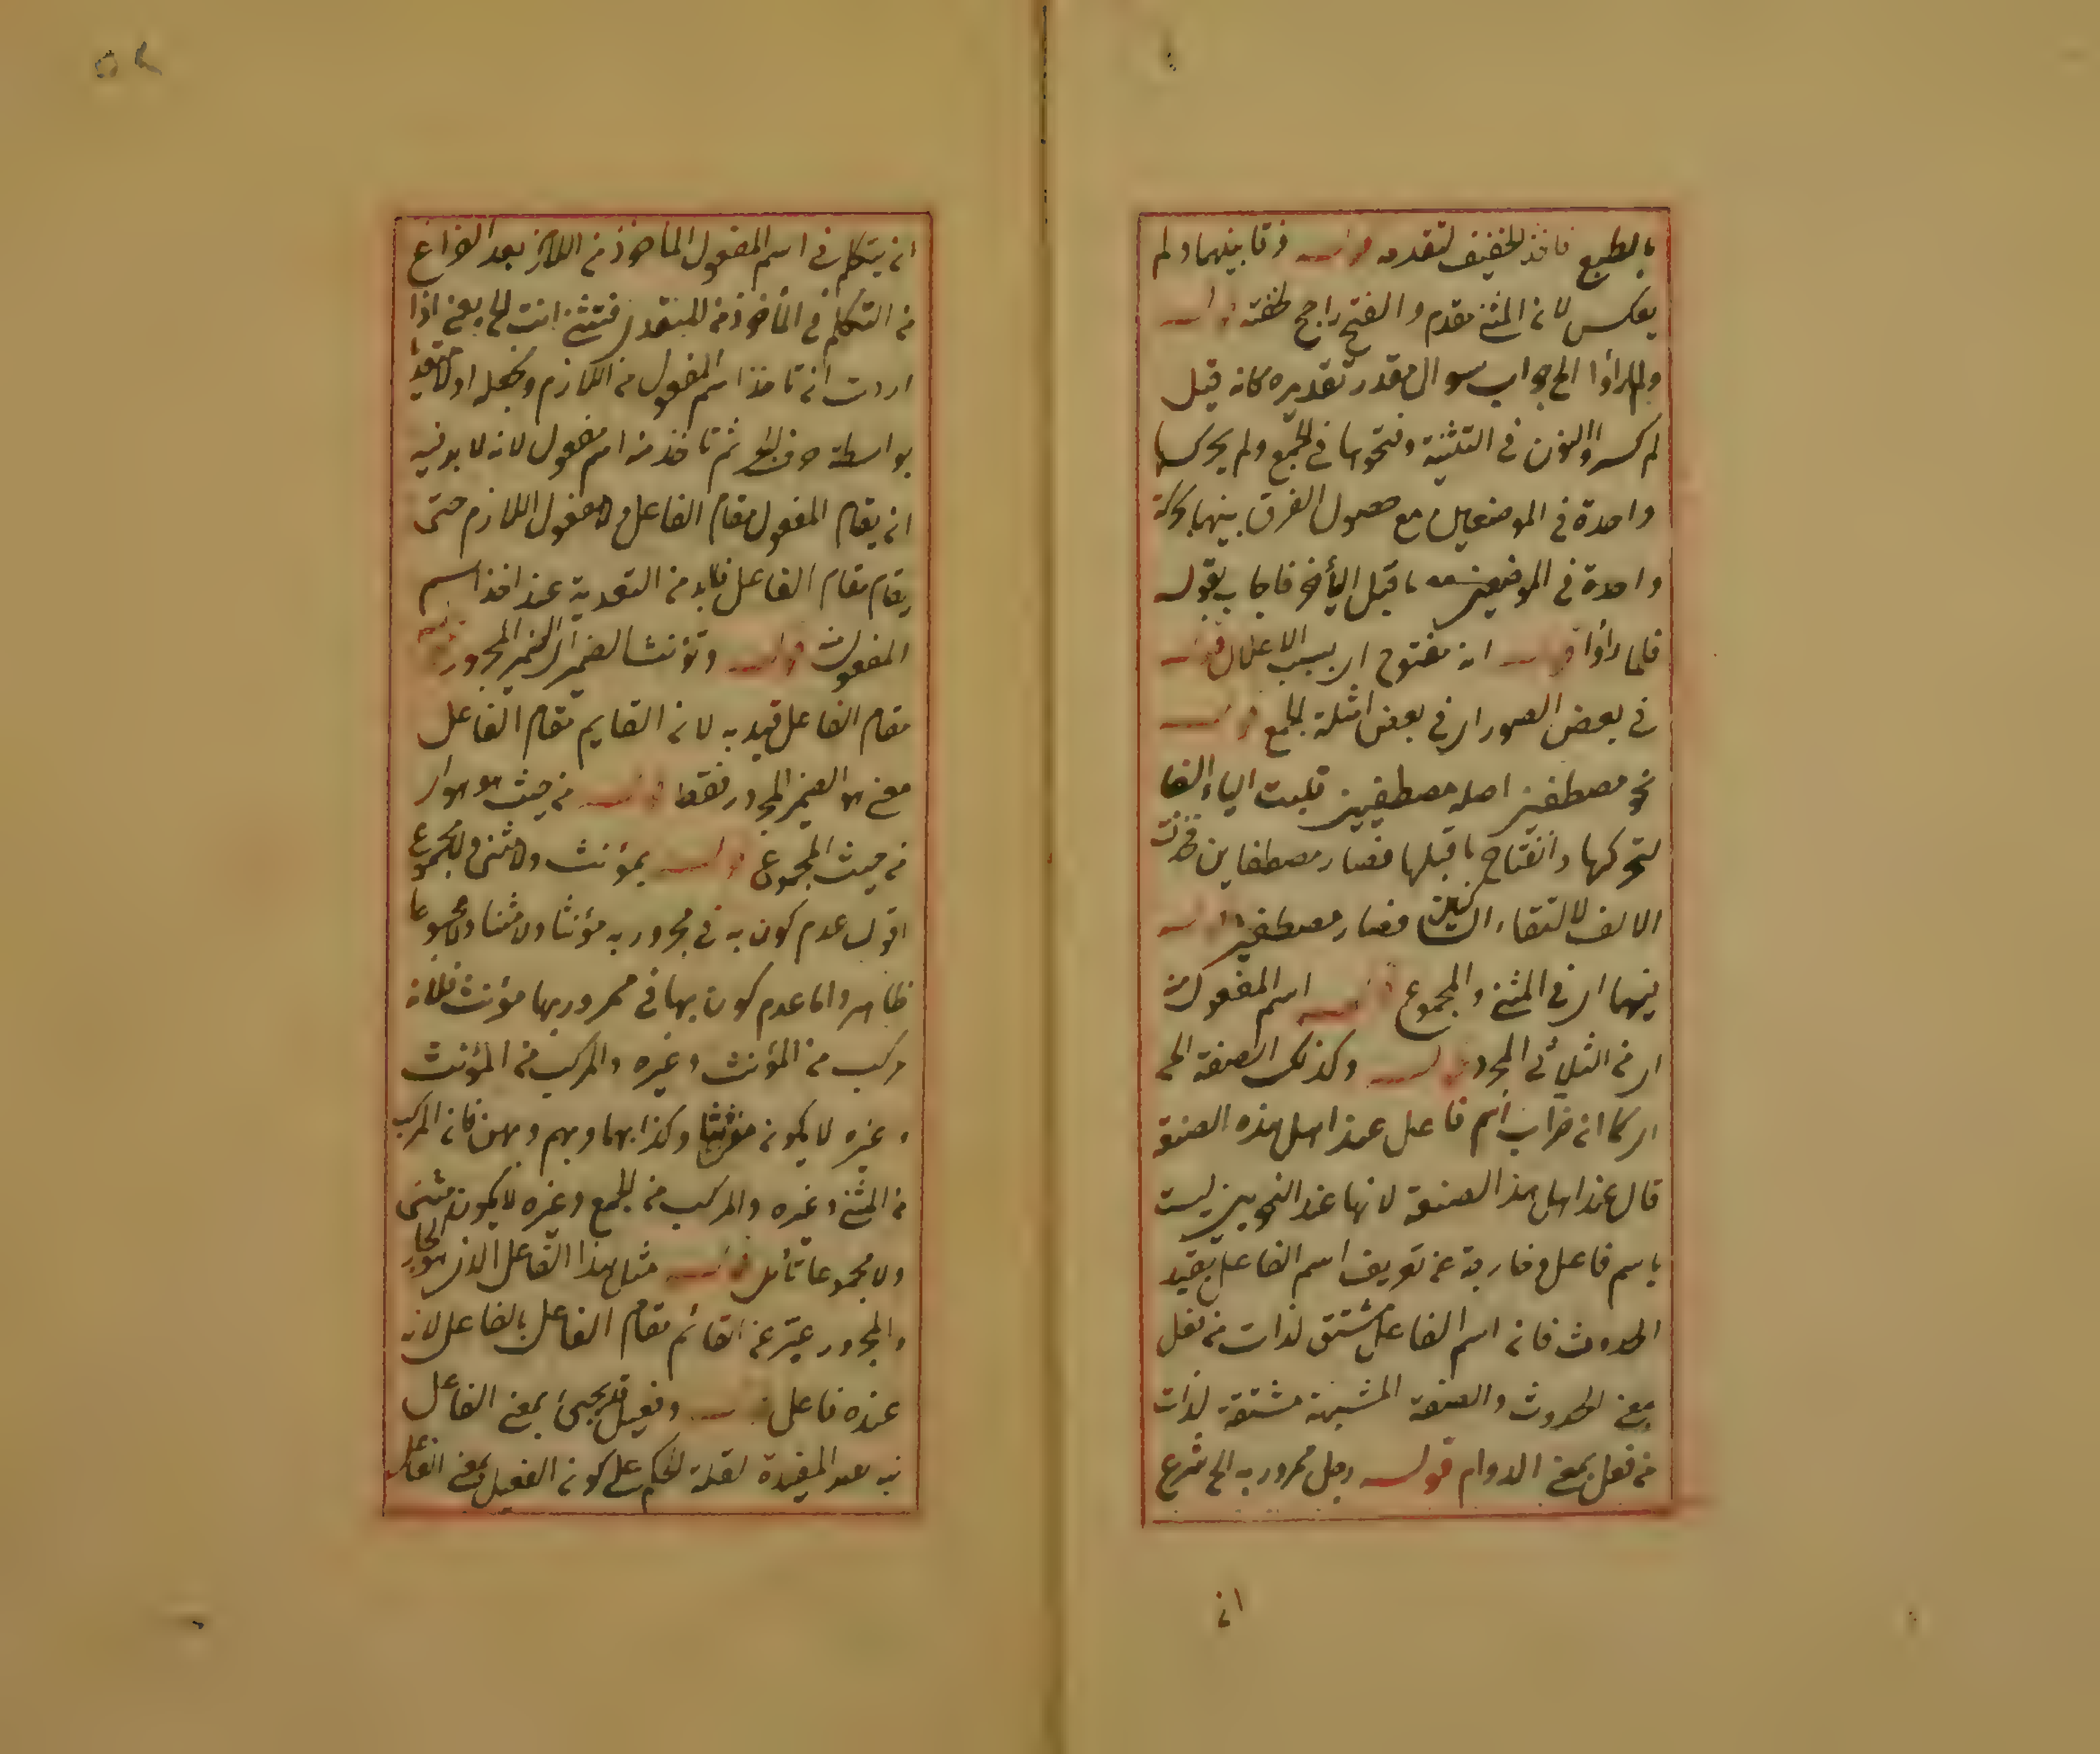 بالطبع فاخذ الخفيف لتقدمه قوله فرقا بينهما ولم
يعكس لان المثنى مقدم والفتح راجح لخفته قوله
ولما رأوا الخ جواب سوال مقدر تقديره كانه قيل
لم كسروا النون في التثنية وفتحوها في الجمع ولم يحركها
واحدة في الموضعين مع حصول الفرق بينهما بحركة
واحدة في الموضعين ما قبل اليأ فاجاب بقوله
فلما رأوا قوله انه مفتوح اى بسبب الاعلال قوله
في بعض الصور اى في بعض امثلة الجمع قوله
نحو مصطفين اصله مصطفيين قلبت الياء الفا
لتحركها وانفتاح ما قبلها فصار مصطفاين فحذفت
الالف لالتقاء الساكنين فصار مصطفين قوله
فيهما اى في المثنى والمجموع قوله اسم المفعول منه
اى من الثلاثى المجرد قوله وكذلك الصفة الخ
اى كما ان ضراب اسم فاعل عند اهل هذه الصنعة
قال عند اهل هذا الصنعة لانها عند النحويين ليست
باسم فاعل خارجة عن تعريف اسم الفاعل بقيد
الحدوث فان اسم الفاعل مشتق لذات من فعل
بمعنى الحدوث والصفة المشبهة مشتقة لذات
من فعل بمعنى الدوام قوله رجل ممرور به الخ شرع
ان
ان يتكلم في اسم المفعول المأخوذ من اللازم بعد الفراغ
من التكلم في المأخوذ من المتعدى فتثنى انت الخ يعنى اذا
اردت ان تاخذ اسم المفعول من اللازم وتجعله اولا متعديا
بواسطة حرف الجر ثم تاخذ منه اسم مفعول لانه لا بد فيه
ان يقام المفعول مقام الفاعل ولا مفعول اللازم حتى
يقام مقام الفاعل فلا بد من التعدية عند اخذ اسم
المفعول منه قوله وتؤنث الضمير اى الضمير المجرور قوله
مقام الفاعل قيد به لان القايم مقام الفاعل
معنى هو الضمير المجرور فقط قوله من حيث هو هو اى
من حيث المجموع قوله بمؤنث ولا مثنى ولا مجموع
اقول عدم كون به في ممرور به مؤنثا ولا مثنا ولا مجموعا
ظاهر واما عدم كون بها في ممرور بها مؤنث فلانه
مركب من المؤنث وغيره والمركب من المؤنث
وغيره لا يكون مؤنثا وكذا بهما وبهم وبهن فان المركب
من المثنى وغيره والمركب من الجمع وغيره لا يكون مثنى
ولا مجموعا تأمل قوله مثل هذا الفاعل الذى هو الجار
والمجرور عبّر عن القائم مقام الفاعل بالفاعل لانه
عنده فاعل قوله وفعيل قد يجئ بمعنى الفاعل
نبه بقد المفيدة لقلة الحكم على كون الفعيل بمعنى الفاعل